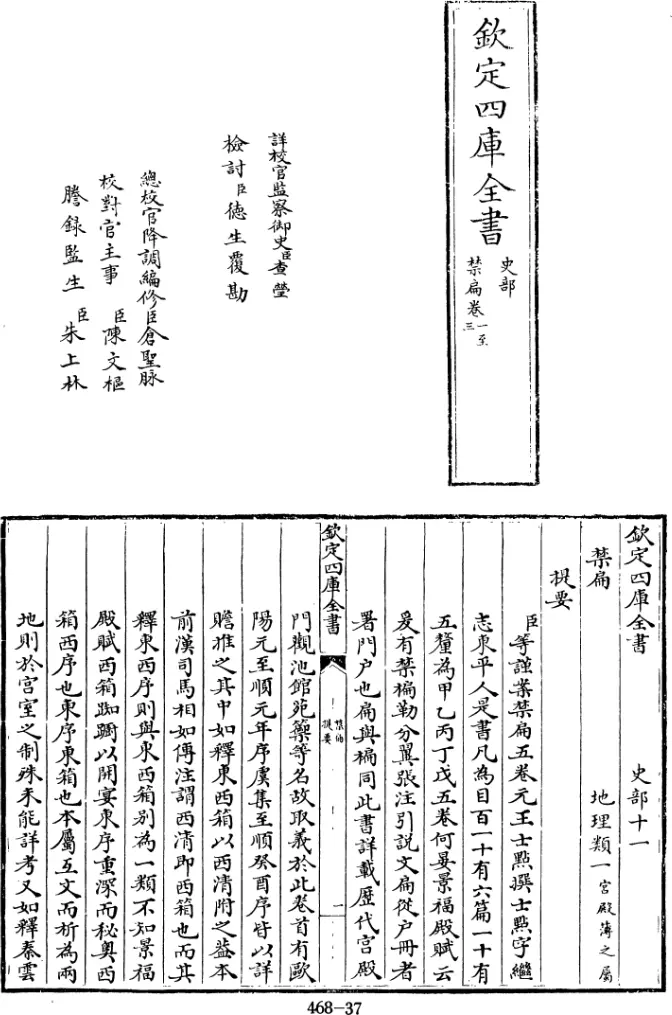 欽定四庫全書
史部
禁扁卷一至三
詳校官監察御史臣查瑩
檢討臣德生覆勘
總校官降調編修臣倉聖脉
校對官主事臣陳文樞
謄錄監生臣朱上林
欽定四庫全書 史部十一
禁扁 地理類一宮殿簿之屬
提要
臣等謹案禁扁五卷元王士點撰士點字繼
志東平人是書凡為目百一十有六篇一十有
五釐為甲乙丙丁戊五卷何晏景福殿賦云
爰有禁楄勒分翼張注引説文扁從户冊者
署門户也扁與楄同此書詳載歷代宫殿
欽定四庫全書
禁扁
提要
一
門觀池館苑籞等名故取義於此卷首有歐
陽元至順元年序虞集至順癸酉序皆以詳
贍推之其中如釋東西箱以西清附之蓋本
前漢司馬相如傳注謂西清即西箱也而其
釋東西序則與東西箱别為一類不知景福
殿賦西箱踟躕以開宴東序重深而秘奥西
箱西序也東序東箱也本屬互文而析為兩
地則於宫室之制殊未能詳考又如釋秦雲
468-37